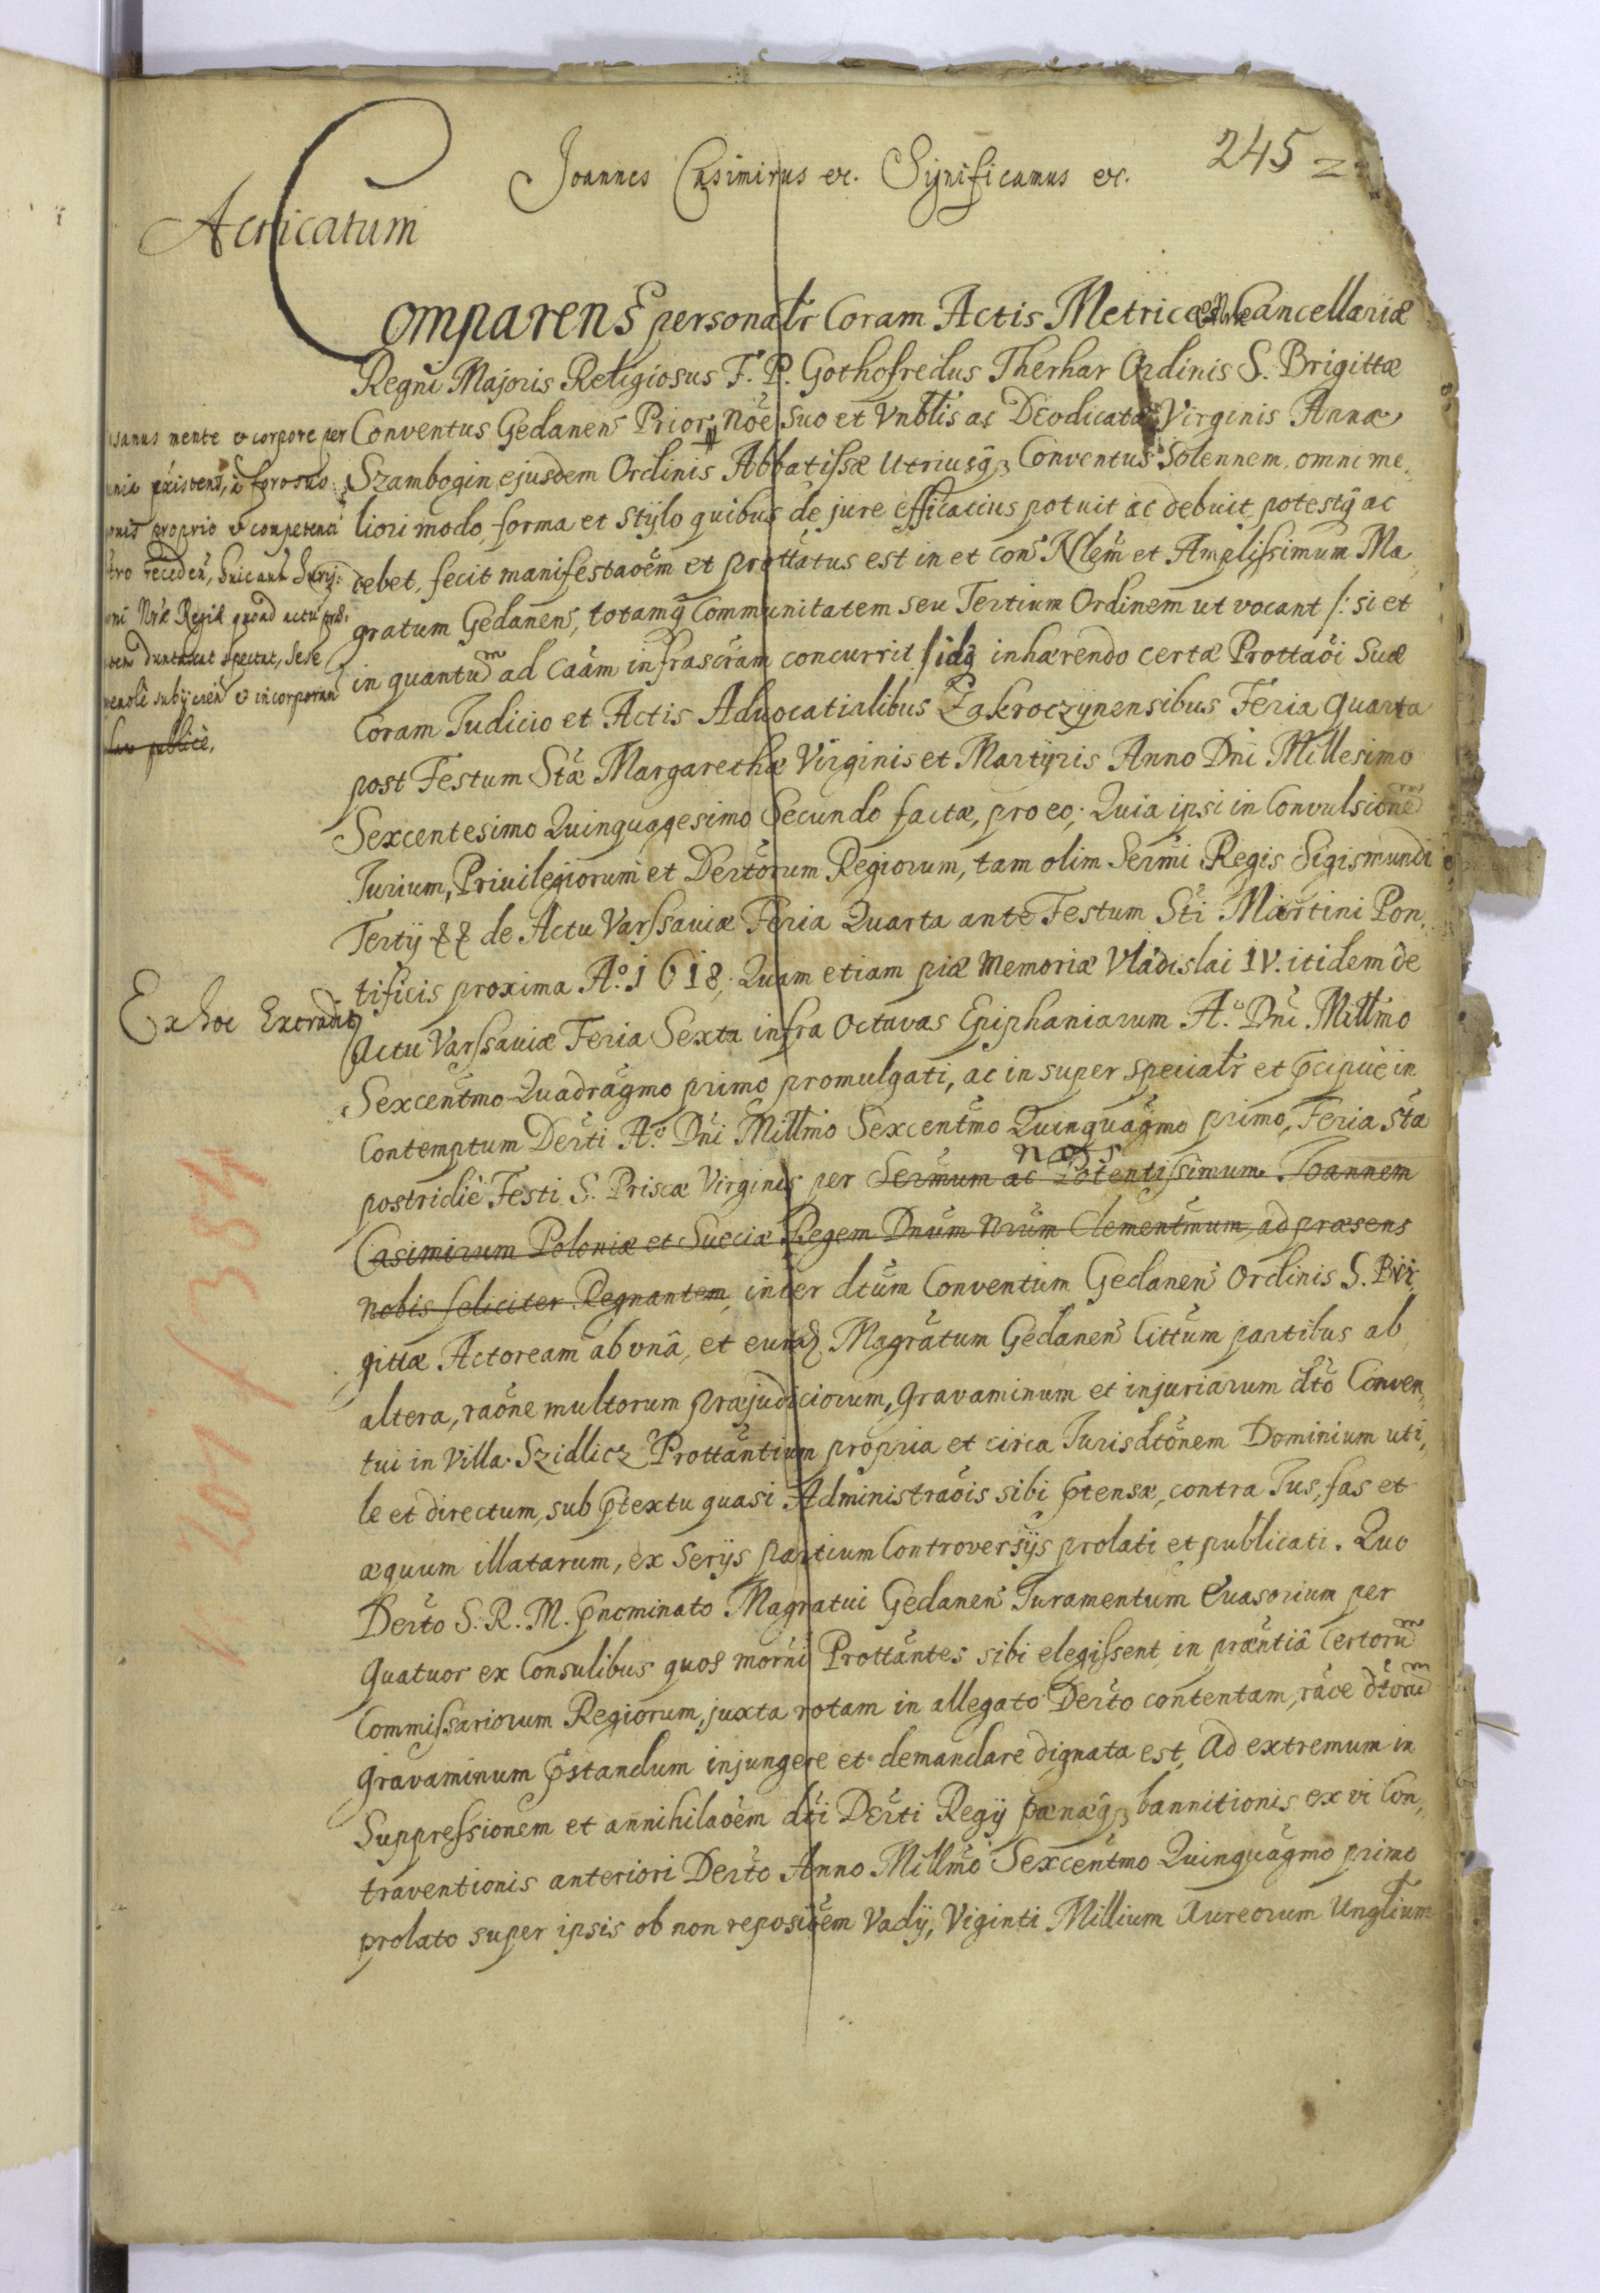 245
Joannes Casimirus etc. Significamus etc.
Acticatum
Comparens personalr Coram Actis Metrices Cancellariæ
Regni Majoris Religiosus F. P. Gothofredus Therhar Ordinis S. Brigittæ
Conventus Gedanens Prior, nõe suo et Vnblis ac Deodicatæ Virginis Annæ
Szambogin ejusdem Ordinis Abbatissæ Utriusq3 Conventus Solennem, omni me,
liori modo, forma et stylo quibus de jure efficacius potuit ac debuit, potestq̃ ac
debet, fecit manifestaõem et prottatus est in et con Nlem et Amplissimum Ma,
gratum Gedanens, totamq̃ Communitatem seu Tertium Ordinem ut vocant /: si et
in quantum ad Caãm infrascr̃am concurrit / idq̃ inhærendo certæ Prottaõi Suæ
Coram Judicio et Actis Aduocatialibus Zakroczÿnensibus Feria quarta
post Festum Stæ Margarethæ Virginis et Martÿris Anno Dni Millesimo
Sexcentesimo Quinquagesimo Secundo factæ, pro eo; Quia ipsi in Convulsionem
Jurium, Priuilegiorum et Decr̃torum Regiorum, tam olim Sermi Regis Sigismundi
Tertÿ de Actu Varssauiæ Feria Quarta ante Festum Sti Martini Pon,
tificis proxima A.º 1618; Quam etiam piæ Memoriæ Vladislai IV. itidem de
Actu Varssauiæ Feria Sexta infra Octauas Epiphaniarum A.º Dni Millmo
Sexcentmo Quadragmo primo promulgati, ac in super specialr et p̃cipuè in
Contemptum Decr̃ti A.º Dni Millmo Sexcentmo Quinquagmo primo, Feria 5ta
postridiè Festi S. Priscæ Virginis per Sermum ac Potentissimum Joannem
nos
Casimirum Poloniæ et Sueciæ Regem Dnum Nrum Clementmum, ad præsens
nobis feliciter Regnantem, inter dtum Conventum Gedanens Ordinis S. Bri,
gittæ Actoream ab vnâ, et eund Magratum Gedanens Cittum partibus ab
altera, raõne multorum præjudiciorum, gravaminum et injuriarum dto Conven,
tui in Villa Szidlicz Prottantium propria et circa Jurisdtonem Dominium uti,
le et directum, sub p̃textu quasi Administraõis sibi p̃tensæ, contra Jus, fas et
æquum illatarum, ex Serÿs partium Controversÿs prolati et publicati. Quo
Decr̃to S. R. M. p̃nominato Magratui Gedanens Juramentum Euasorium per
quatuor ex Consulibus quos morni Prottantes sibi elegissent, in præntiâ Certorum
Commissariorum Regiorum, juxta rotam in allegato Decr̃to contentam, raõe dtorum
gravaminum p̃standum injungere et demandare dignata est, Ad extremum in
Suppressionem et annihilaõem dti Decr̃ti Regÿ pænæq3 bannitionis ex vi Con,
traventionis anteriori Decr̃to Anno Millmo Sexcentmo Quinquagmo primo
prolato super ipsis ob non reposiõem Vadÿ, Viginti Millium Aureorum Unglium
sanus mente et corpore per
existens, à foro suo
proprio et competenti
receden, huicant Juris:
oni Nræ Regiæ quoad actu præ:
duntaxat spectat, sese
subÿcien et incorporan
publicè,
Ex hoc Extradit
1 Z07 / 384